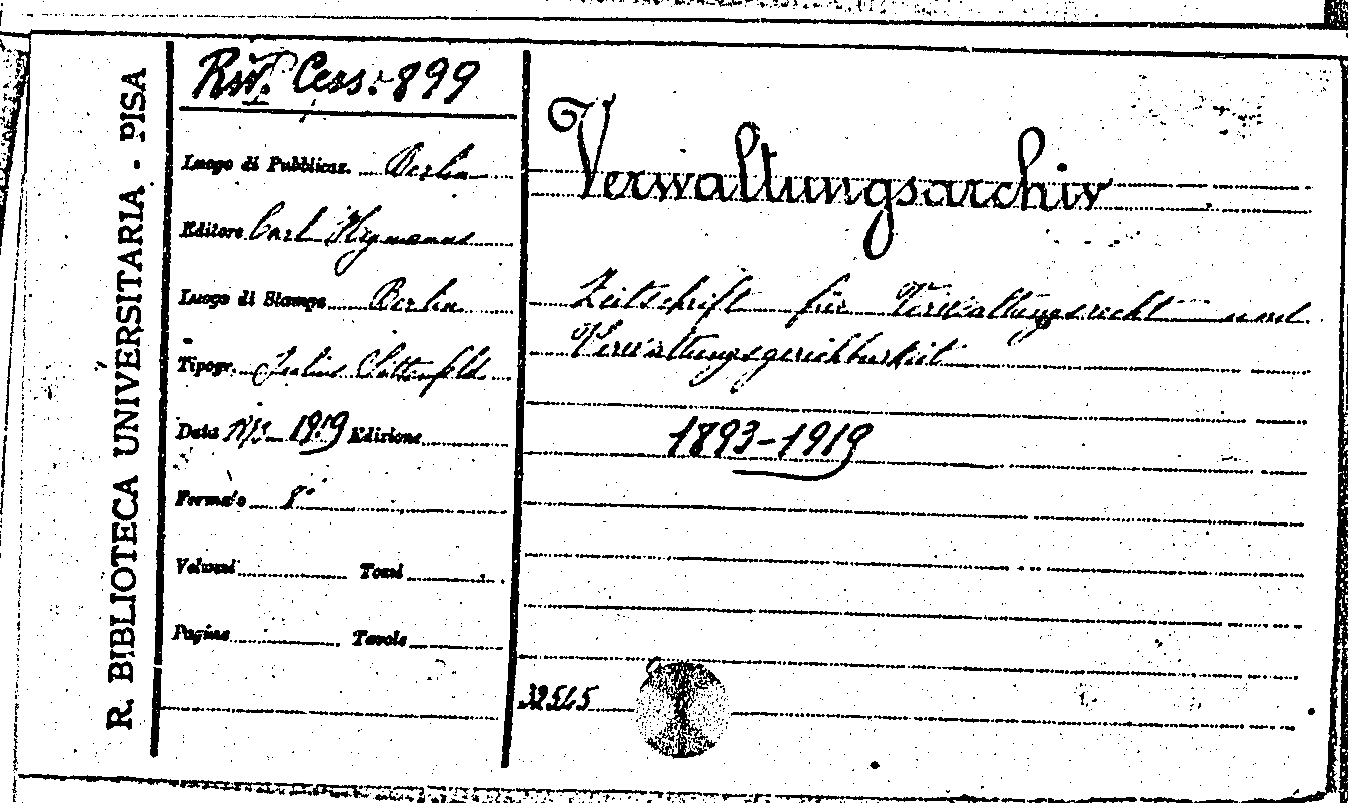 R. BIBLIOTECA UNIVERSITARIA - PISA
Riv. Cess. 899
Luogo di Pubblicaz. Berlin
Editore Carl Heymanns
Luogo di Stampa Berlin
Tipogr. Julius Sittenfeld
Data 1919 Edizione
Formato 8°
Volumi Tomi
Pagine Tavole
Verwaltungsarchiv
Zeitschrift für Verwaltungsrecht und
Verwaltungsgerichtbarkeit
1893-1919